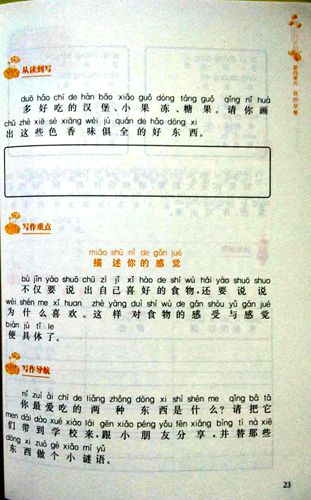 从读到写
duō hǎo chī de hàn bǎo xiǎo guǒ dòng táng guǒ qǐng nǐ huà
多好吃的汉堡、小果冻、糖果。请你画
chū zhè xiē sè xiāng wèi jù quán de hǎo dōng xi
出这些色香味俱全的好东西。
写作重点
miáo shù nǐ de gǎn jué
描述你的感觉
bù jǐn yào shuō chū zì jǐ xǐ hào de shí wù hái yào shuō shuo
不仅要说出自己喜好的食物,还要说说
wèi shén me xǐ huan zhè yàng duì shí wù de gǎn shòu yǔ gǎn jué
为什么喜欢。这样对食物的感受与感觉
biàn jù tǐ le
便具体了。
写作导航
nǐ zuì ài chī de liǎng zhǒng dōng xi shì shén me qǐng bǎ tā
你最爱吃的两种东西是什么?请把它
men dài dào xué xiào lái gēn xiǎo péng yǒu fēn xiǎng bìng tì nà xiē
们带到学校来,跟小朋友分享,并替那些
dōng xi zuò gè xiǎo mí yǔ
东西做个小谜语。
23